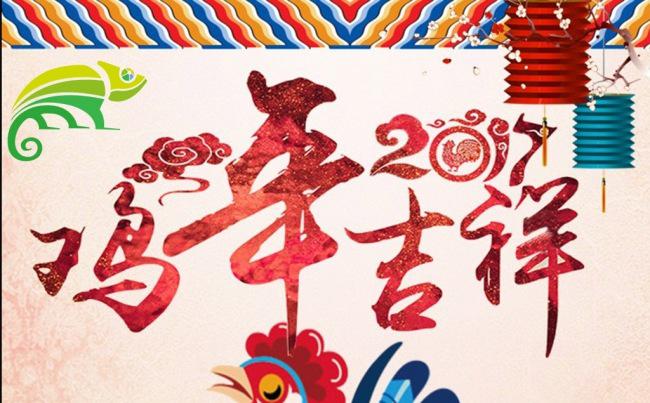 鸡年吉祥
2017